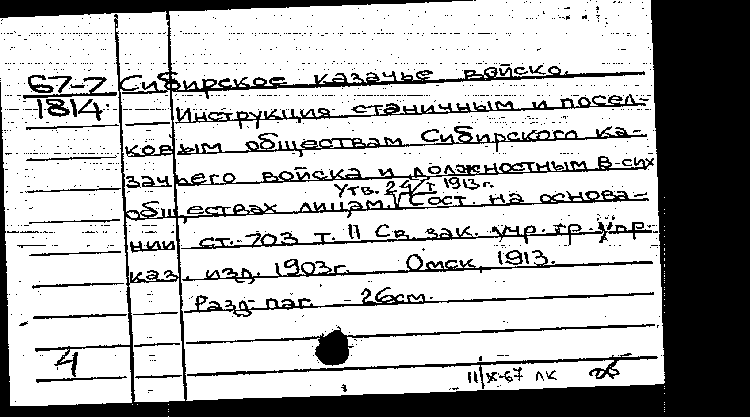 67-7 Сибирское казачье войско.
1814 Инструкция станичным и посел-
ковым обществам Сибирского ка-
зачьего войска и должностным в сих
Утв. 24/I 1913г.
обществах лицам. Сост. на основа-
нии ст. 703 т. II Св. зак. учр. гр. упр.
каз. изд. 1903г. Омск, 1913.
Разд. паг. 26см.
4
11/X-67 ЛК